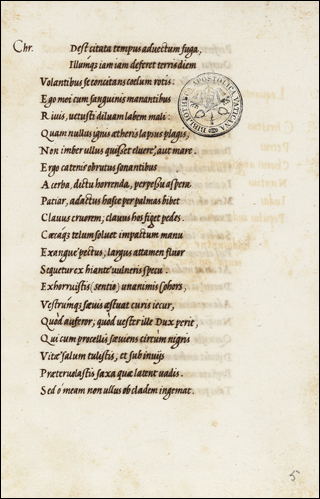 Chr. Dest citata tempus aduectum fuga,
Illumq́s iam iam deferet terris diem
Volantibus se concitans coelum rotis.
Ego mei cum sanguinis manantibus
Riuis, uetusti diluam labem mali:
Quam nullus ignis ætheris lapsus plagis,
Non imber ullus quisset eluere, aut mare.
Ergo catenis obrutus sonantibus
Acerba, dictu horrenda, perpessu aspera
Patiar, adactus hasce per palmas bibet
Clauus cruorem, clauus hos figet pedes.
Cæcaq́s telum soluet impactum manu
Exangue pectus, largus attamen fluor
Sequetur ex hiante vulneris specu.
Exhorruistis (sentio) unanimis cohors,
Vestrumq́s sæuis æstuat curis iecur,
Quòd auferor, quòd uester ille Dux perit,
Qui cum procellis sæuiens circùm nigris
Vitæ salum tulistis, et sub inuijs
Præteruolastis saxa quæ latent uadis.
Sed ò meam non ullus ob cladem ingemat.
BIBLIOTHECA APOSTOLICA VATICANA
5